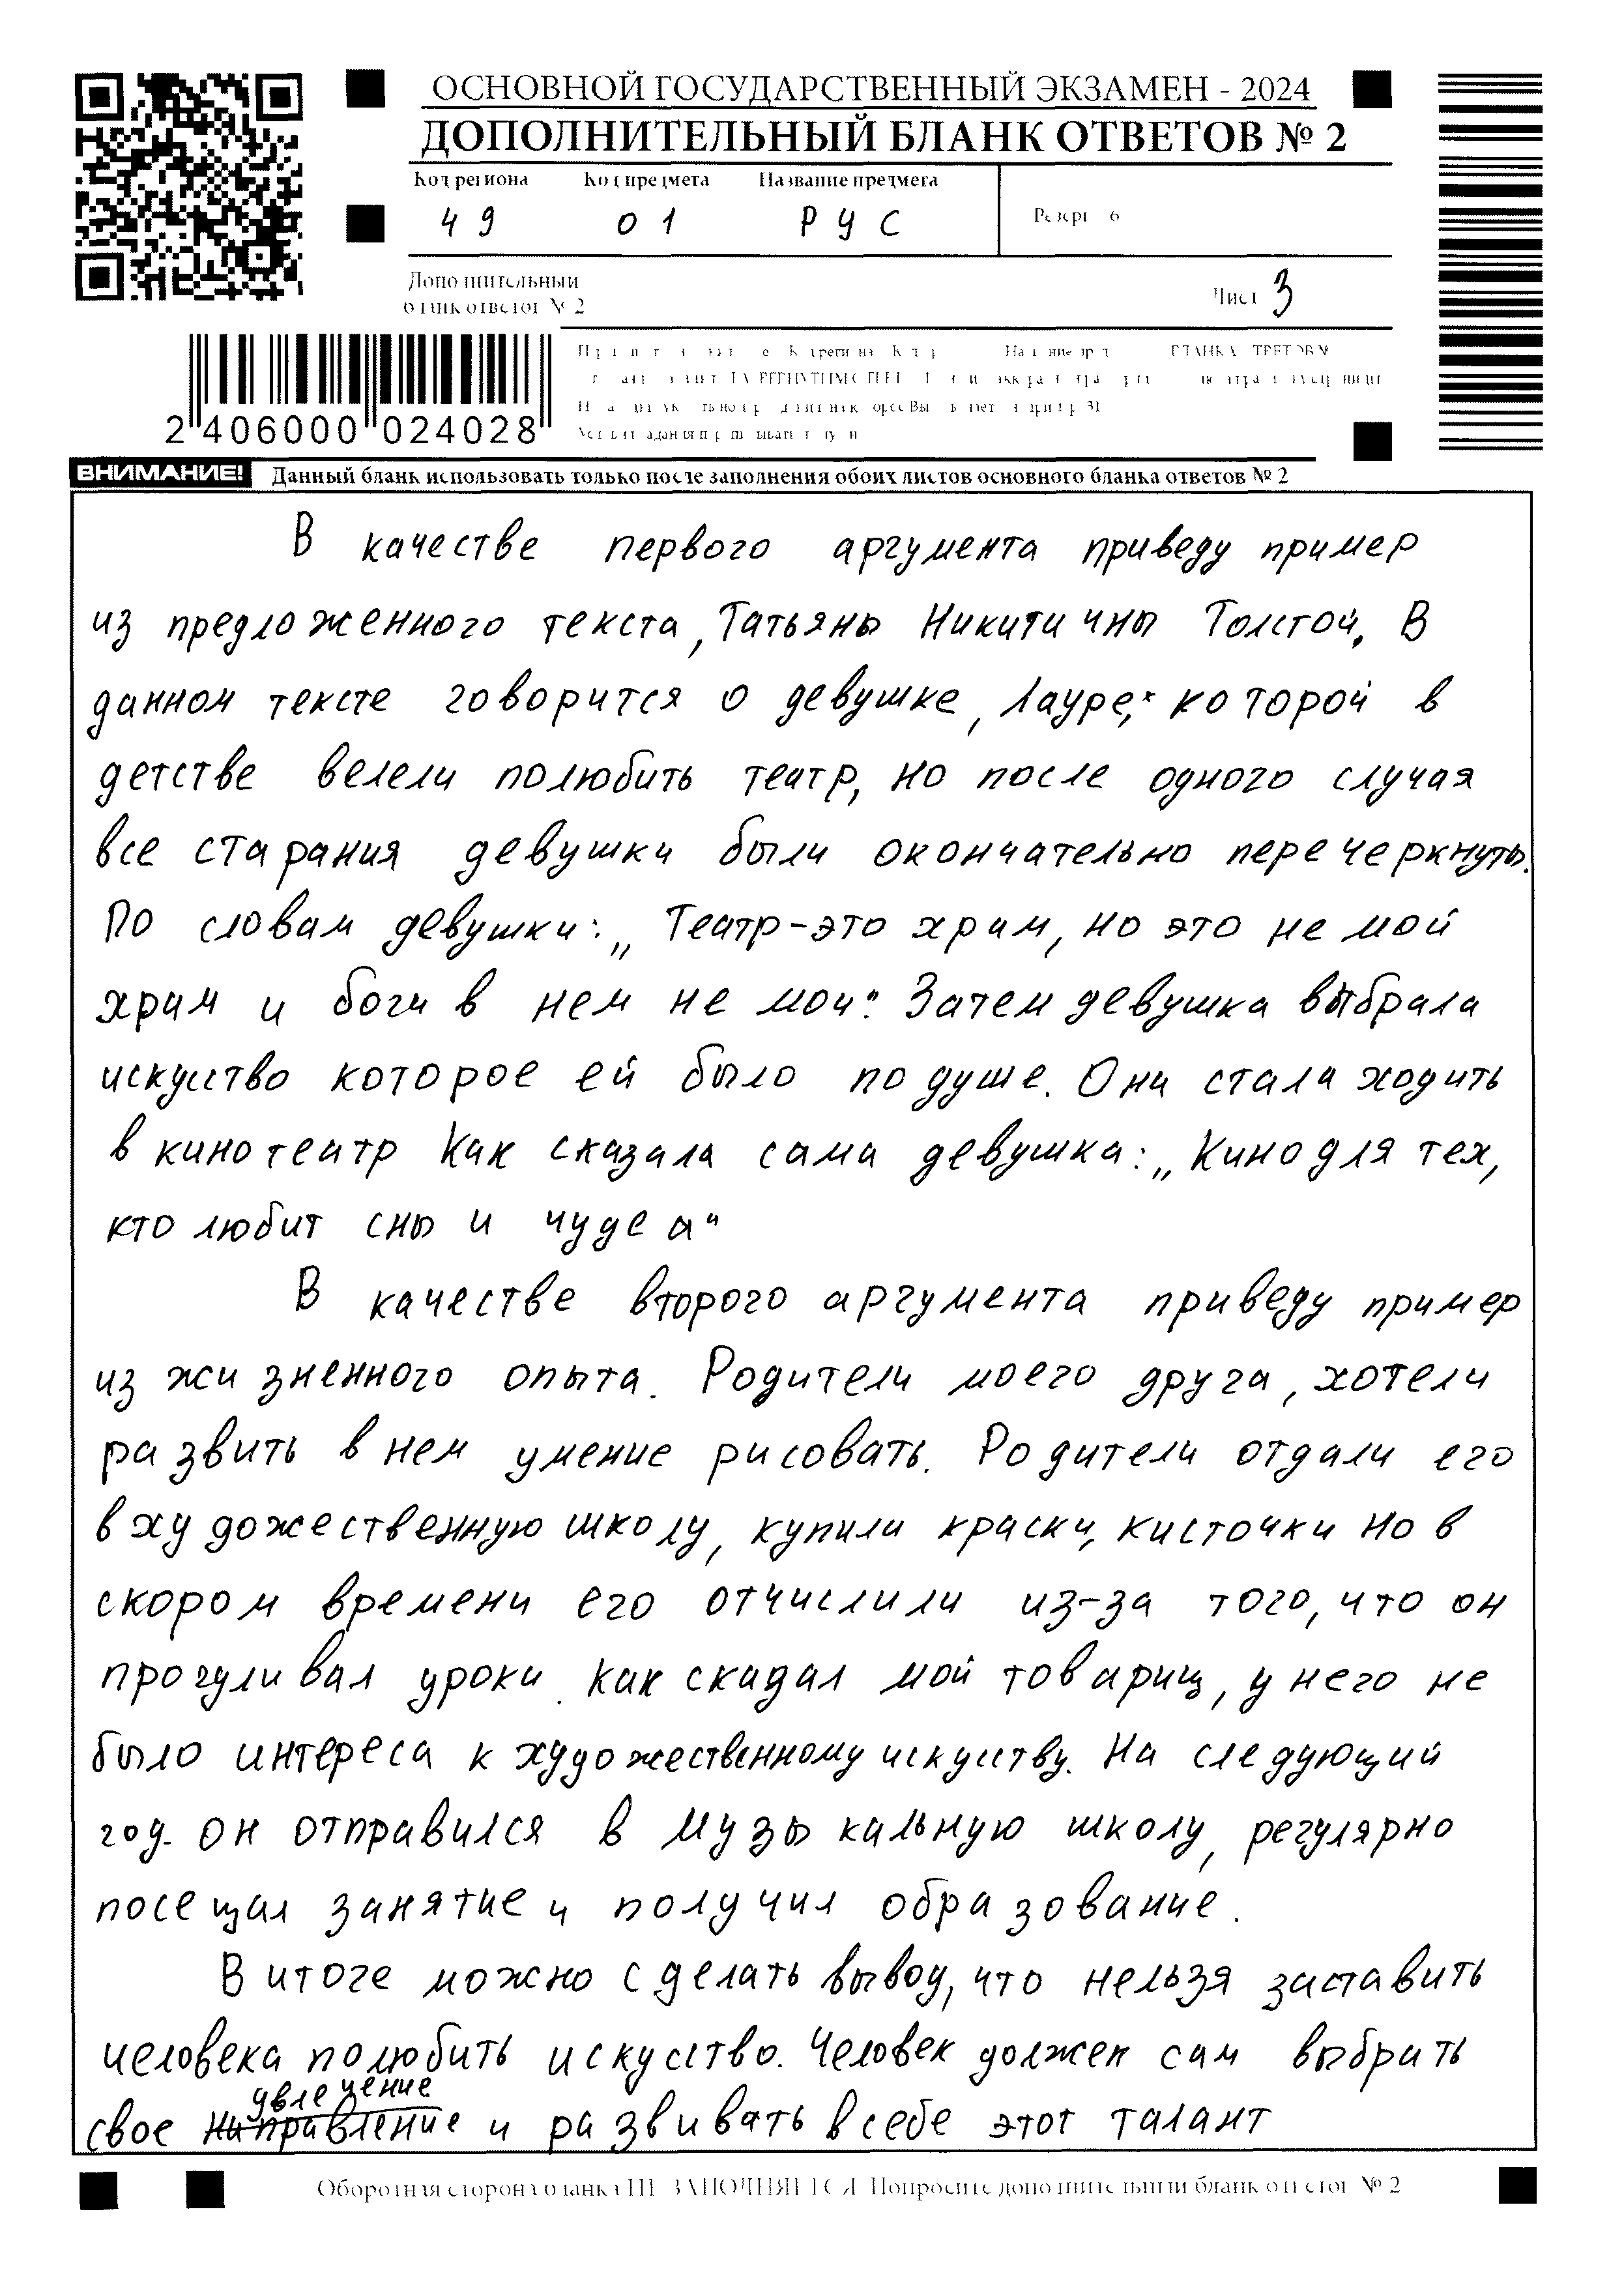 ОСНОВНОЙ ГОСУДАРСТВЕННЫЙ ЭКЗАМЕН - 2024
ДОПОЛНИТЕЛЬНЫЙ БЛАНК ОТВЕТОВ № 2
Код региона Код предмета Название предмета
49 01 РУС
Резерв - 6
Дополнительный
бланк ответов № 2
Лист 3
2 406000 024028
ВНИМАНИЕ! Данный бланк использовать только после заполнения обоих листов основного бланка ответов № 2
В качестве первого аргумента приведу пример
из предложенного текста, Татьяны Никитичны Толстой. В
данном тексте говорится о девушке, Лауре, которой в
детстве велели полюбить театр, но после одного случая
все старания девушки были окончательно перечеркнуты.
По словам девушки: „Театр-это храм, но это не мой
храм и боги в нем не мои". Затем девушка выбрала
искусство которое ей было по душе. Она стала ходить
в кинотеатр Как сказала сама девушка: „Кино для тех,
кто любит сны и чудеса"
В качестве второго аргумента приведу пример
из жизненного опыта. Родители моего друга, хотели
развить в нем умение рисовать. Родители отдали его
в художественную школу, купили краски, кисточки но в
скором времени его отчислили из-за того, что он
прогуливал уроки. Как скадал мой товарищ, у него не
было интереса к художественному искусству. На следующий
год он отправился в музыкальную школу, регулярно
посещал занятие и получил образование.
В итоге можно сделать вывод, что нельзя заставить
человека полюбить искусство. Человек должен сам выбрать
увлечение
свое направление и развивать в себе этот талант
Оборотная сторона бланка НЕ ЗАПОЛНЯЕТСЯ. Попросите дополнительный бланк ответов № 2